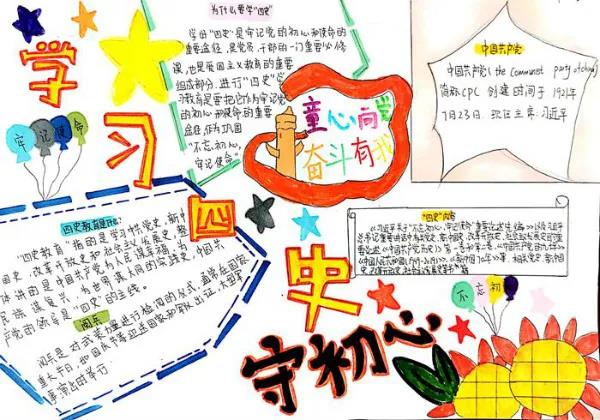 学习四史守初心
为什么要学“四史”
学习“四史”是牢记党的初心和使命的
重要途径，是党员、干部的一门重要必修
课，也是爱国主义教育的重要
组成部分，进行“四史”
习教育是要把它作为牢记党
的初心和使命的重要
“不忘初心，
牢记使命”
童心向党
奋斗有我
中国共产党
中国共产党(the communist party of china)
简称CPC 创建时间于1921年
7月23日. 现任主席:习近平
牢记使命
四史教育是指:
“四史教育”指的是学习中共党史、新中
国史、改革开放史和社会主义发展史
体讲的是中国共产党为人民谋幸福、为
民族谋复兴、为世界谋大同的实践史，中国共
产党的领导是“四史”的主线。
阅兵
阅兵是对武装力量进行检阅的仪式，通常在国家
重大节日、
事演习的举行
“四史”内容
不忘初